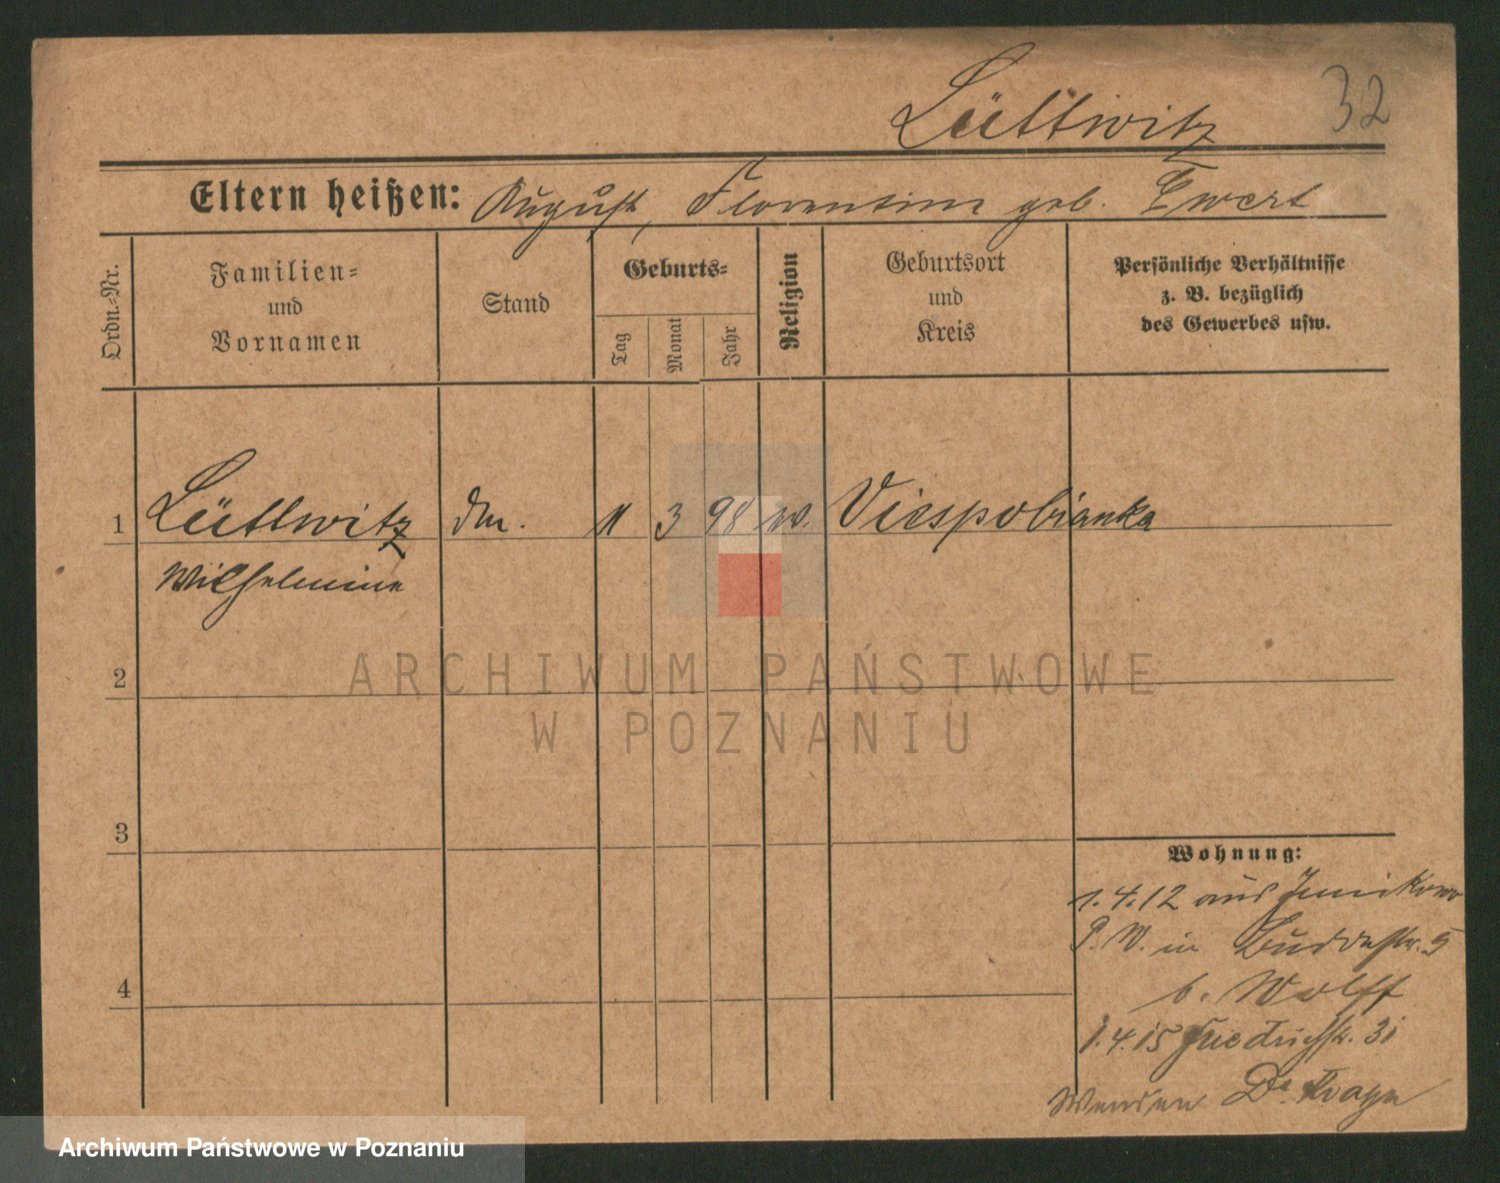 Lüttwitz 32
Eltern heißen: August, Florentine geb. Ewert
Ordn.-Nr.
Familien-
und
Vornamen
Stand
Geburts-
Tag
Monat
Jahr
Religion
Geburtsort
und
Kreis
Persönliche Verhältnisse
z. B. bezüglich
des Gewerbes usw.
1 Lüttwitz 3 98 Viespobianka
Wilhelmine
2
3
4
Wohnung:
1.4.12 aus Junikowo
P. W. in Buddestr. 5
b. Wolff
1.4.15 Friedrichstr. 31
Wenden Dr.
ARCHIWUM PAŃSTWOWE
W POZNANIU
Archiwum Państwowe w Poznaniu